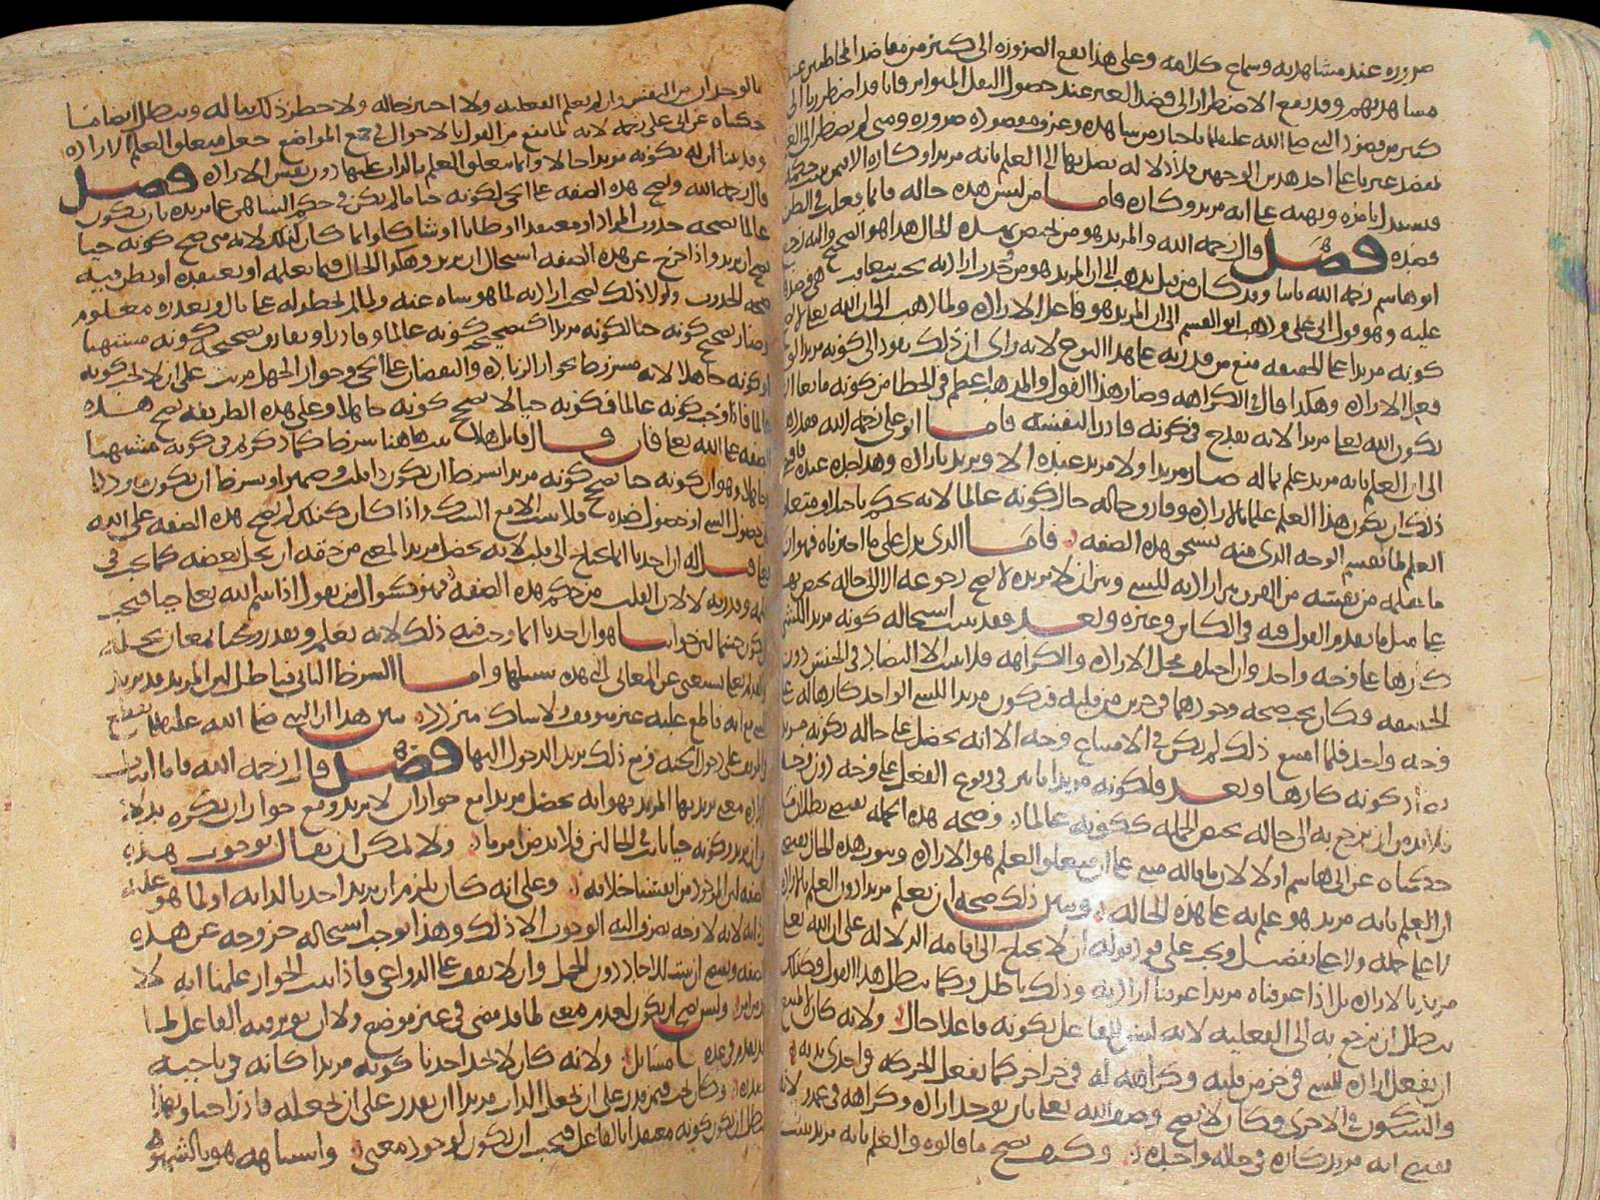 ضرورة عند مشاهدته وسماع كلامه وعلى هذا يقع الضرورة الى كثير من مقاصد المخاطبين عند
مشاهدتهم وقد يقع الاضطرار الى قصد الغير عند حصول النقل المتواتر فانا قد اضطررنا الى
كثير من قصود النبي صلى الله عليه
لقصد غيرنا على احد هذين الوجهين فلا دلالة نصل بها الى العلم بانه مريد او كاره الا فيمن
فيستدل بامره ونهيه على انه مريد وكاره فاما من ليس هذه حاله فانما
قصده فصل قال رحمه الله والمريد هو من اختص بهذه الحال هذا هو الصحيح واليه رجع
ابو هاشم رحمه الله وقد كان من قبل يذهب الى ان المريد هو من
عليه وهو قول ابي علي وذهب ابو القسم الى ان المريد هو فاعل الارادة ولما ذهب الى ان الله تعالى
كونه مريدا على الحقيقة منع من قدرته على هذا النوع لانه راى ان ذلك يعود الى كونه مريدا
فعل الارادة وهكذا قال في الكراهة وصار هذا القول والمذهب اعظم في الخطا من كونه
يكون الله تعالى مريدا لانه يقدح في كونه قادرا لنفسه فاما ابو علي رحمه الله
الى ان العلم بانه مريد علم بما له صار مريدا ولا مريد عنده الا ويريد بارادة
ذلك ان يكون هذا العلم علما بالارادة وفارق حاله حال كونه عالما لانه
العلم لما ينقسم الوجه الذي منه يستحق هذه الصفة فاما الذي يدل على ما اخترناه فهو ان
ما يعلمه من نفسه من الفرق بين ارادته للشيء وبين ان لا يريده لا يصح رجوعه الا الى حاله
على مثل ما تقدم القول فيه في الكاره وغيره وبعد فقد ثبت استحالة كونه مريدا للشيء
كارها على وجه واحد وان اختلف محل الارادة والكراهة فلا يثبت الا التضاد في الجنس دون
الحقيقة فكان يجب صحة وجودهما في جزين من قلبه فيكون مريدا للشيء الواحد كارها له على
وجه واحد فلما امتنع ذلك لم يكن في الامتناع وجه الا انه يحصل على حاله بكونه مريدا
كونه كارها وبعد فلكونه مريدا تاثير في وقوع الفعل على وجه دون وجه
فلا بد من ان يرجع به الى حاله تختص الجملة ككونه عالما وصحة هذه الجملة تقتضي بطلان
حكيناه عن ابي هاشم اولا لان ما قاله مبني على ان متعلق العلم هو الارادة وثبوت هذه الحال
ان العلم بانه مريد هو علم به على هذه الحالة وتبين ذلك صحة ان يعلم مريدا دون العلم بالارادة
لا على جملة ولا على تفصيل ويجب على قود قوله ان لا يحتاج الى اقامة الدلالة على ان الله تعالى
مريد بالارادة بل اذا عرفناه مريدا عرفنا ارادته وذلك باطل وكما يبطل هذا القول فكذلك
يبطل ان يرجع به الى الفعلية لانه ليس للفاعل بكونه فاعلا حال ولانه كان لا يمتنع
ان يفعل ارادة للشيء في جزء من قلبه وكراهة له في جزء اخر كما يفعل الحركة في احدى يديه
والسكون في الاخرى وكان لا يصح وصف الله تعالى بان يوجد ارادة وكراهة في غيره لانه
يقتضي انه مريد كاره في حالة واحدة وكيف يصح ما قالوه والعلم بانه مريد يثبت
ولا اختبر حاله ولا خطر ذلك بباله ويبطل ايضا ما
حكيناه عن ابي علي رحمه الله لانه لما منع من القول بالاحوال في جميع المواضع جعل متعلق العلم الارادة
وقد بينا ان له بكونه مريدا حالا وانما يتعلق العلم بالذات عليها دون نفس الارادة فصل
قال رحمه الله وتصح هذه الصفة على الحي لكونه حيا ما لم يكن في حكم الساهي عما يريده بان يكون
عالما بصحة حدوث المراد او معتقدا او ظانا او شاكا وانما كان كذلك لانه متى صح كونه حيا
صح ان يريد واذا خرج عن هذه الصفة استحال ان يريد وهكذا الحال فيما يعلمه او يعتقده او يظن فيه
صحة الحدوث ولولا ذلك لصح ارادته لما هو ساه عنه ولما لم يخطر له على بال وبعده معلوم
فصار يصحح كونه حيا لكونه مريدا كتصحيحه كونه عالما وقادرا ويفارق تصحيحه كونه مشتهيا
او كونه جاهلا لانه مشروط بجواز الزيادة والنقصان على الحي وجواز الجهل مرتب على ان لا يجب كونه
عالما فاذا وجب كونه عالما فكونه حيا لا يصحح كونه جاهلا وعلى هذه الطريقة تصح هذه
الصفة على الله تعالى فان قال قائل هلا بينتم هاهنا شرطا كما ذكرتم في كونه مشتهيا
وجاهلا وهو ان كونه حيا يصحح كونه مريدا بشرط ان يكون ذا قلب وضمير او بشرط ان يكون
من حصول الشيء او حصول ضده فلا يثبت الا مع الشك واذا كان كذلك لم تصح هذه الصفة على الله
تعالى قيل له ان احدنا انما يحتاج الى قلب لانه يحصل مريدا لمعنى من حقه ان يحل بعضه كما يجب في
علمه وقدرته لا لان القلب من حكم هذه الصفة فهو كسؤال من يقول اذا ثبت الله تعالى حيا فيجب
ان يكون جسما لان جوابنا هو ان احدنا انما وجب فيه ذلك لانه يعلم ويقدر ويحيا لمعان تحله
والقديم تعالى يستغني عن المعاني التي هذه سبيلها واما الشرط الثاني فباطل لان المريد قد يريد
الشيء مع انه قاطع عليه غير متوقف ولا شاك متردد يبين هذا ان النبي صلى الله عليه
على دخول الجنة ومع ذلك يريد الدخول اليها فصل قال رحمه الله فاما اثبات
الارادة معنى يريد بها المريد فهو انه يحصل مريدا مع جواز ان لا يريد ومع جواز ان يكره بدلا
من ان يريد وكونه حيا ثابت في الحالين فلا بد من امر ما ولا يمكن ان يقال بوجوب هذه
الصفة لان الوجود من انفسنا خلافه وعلى انه كان يلزم ان يريد احدنا لذاته او لما هو عليه
في ذاته لانه لا وجه يصرف اليه الوجوب الا ذلك وهذا يوجب استحالة خروجه عن هذه
الصفة ويقتضي ان يثبت للاجزاء دون الجمل وان لا يقف على الدواعي فاذا ثبت الجواز علمنا انه لا
بد من امر وليس يصح ان يكون لعدم معنى لما قد مضى في غير موضع ولا ان يؤثر فيه الفاعل لما
قد تقدم في عدة مسائل ولانه كان لا يجد احدنا كونه مريدا كانه في ناحية
صدره وكان يجب فيمن قدر على ان يجعل الذات مريدا ان يقدر على ان يجعله قادرا حيا وبهذا
يبطل ان يكون كونه معتقدا بالفاعل فيجب ان يكون لوجود معنى واشباهه هو بالشهوة